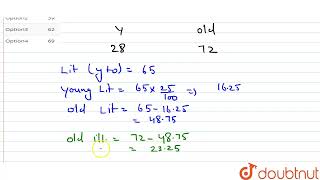 Option2 59
Option3 62
Option4 69
y old
28 72
Lit (y+o) = 65
Young Lit = 65 x 25/100 => 16.25
old Lit = 65 - 16.25
= 48.75
old ill. = 72 - 48.75
= 23.25
doubtnut